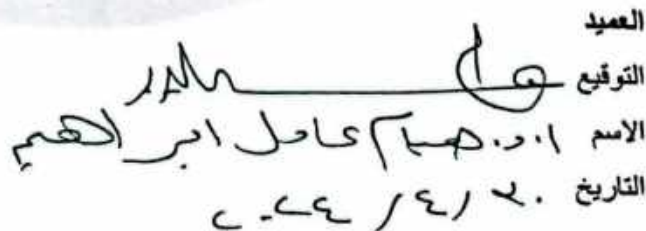 العميد
التوقيع
الاسم ا.د. هسام عادل ابراهيم
التاريخ ٣٠ / ٤ / ٢٠٢٤